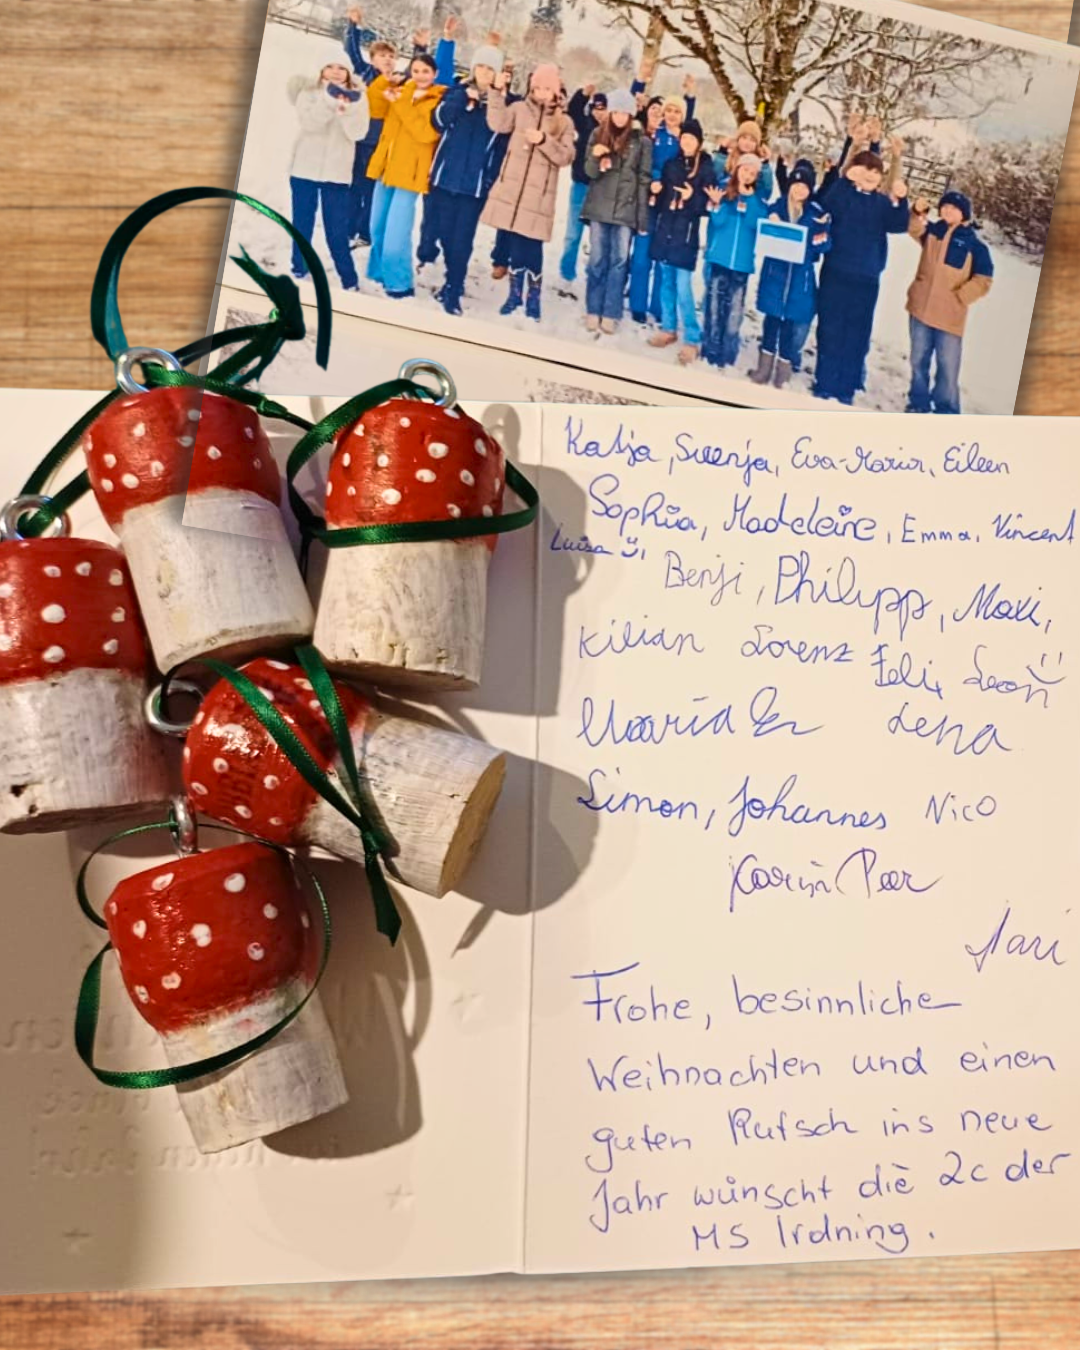 Katja, Svenja, Eva-Maria, Eileen
Sophia, Madeleine, Emma, Vincent
Luisa ü, Benji, Philipp, Maxi,
Kilian Lorenz Felix Leon
Lena
Simon, Johannes Nico
Karin
Frohe, besinnliche
Weihnachten und einen
guten Rutsch ins neue
Jahr wünscht die 2c der
MS Irdning.